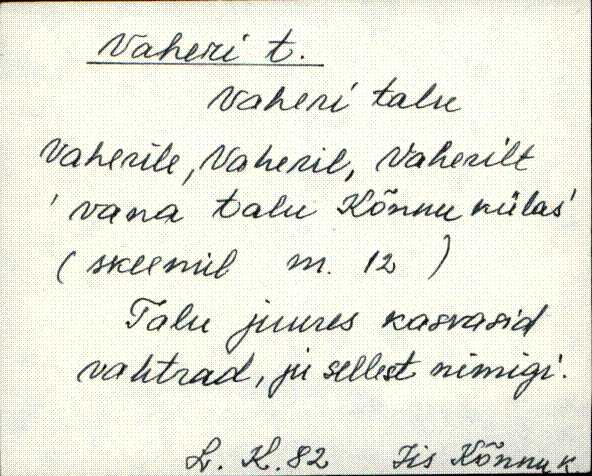 Vaheri t.
Vaheri talu
Vaherile, Vaheril, Vaherilt
'vana talu Kõnnu külas'
(skeemil m. 12)
Talu juures kasvasid
vahtrad, ju sellest nimigi.
L. K. 82 Iis Kõnnu k.